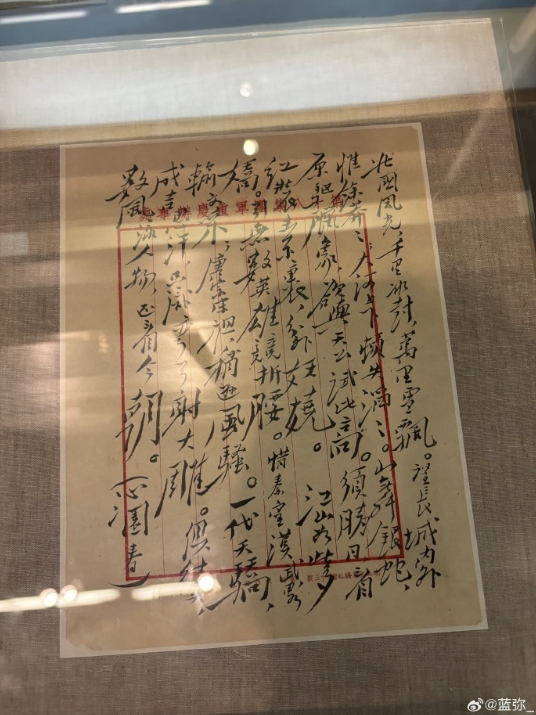 北國風光，千里冰封，萬里雪飄。望長城內外，
惟餘莽莽；大河上下，頓失滔滔。山舞銀蛇，
原驅臘象，欲與天公試比高。須晴日，看
紅裝素裹，分外妖嬈。江山如此多
嬌，引無數英雄競折腰。惜秦皇漢武，略
輸文采；唐宗宋祖，稍遜風騷。一代天驕，
成吉思汗，只識彎弓射大雕。俱往矣，
數風流人物，还看今朝。沁園春
軍重慶辦
@蓝弥_